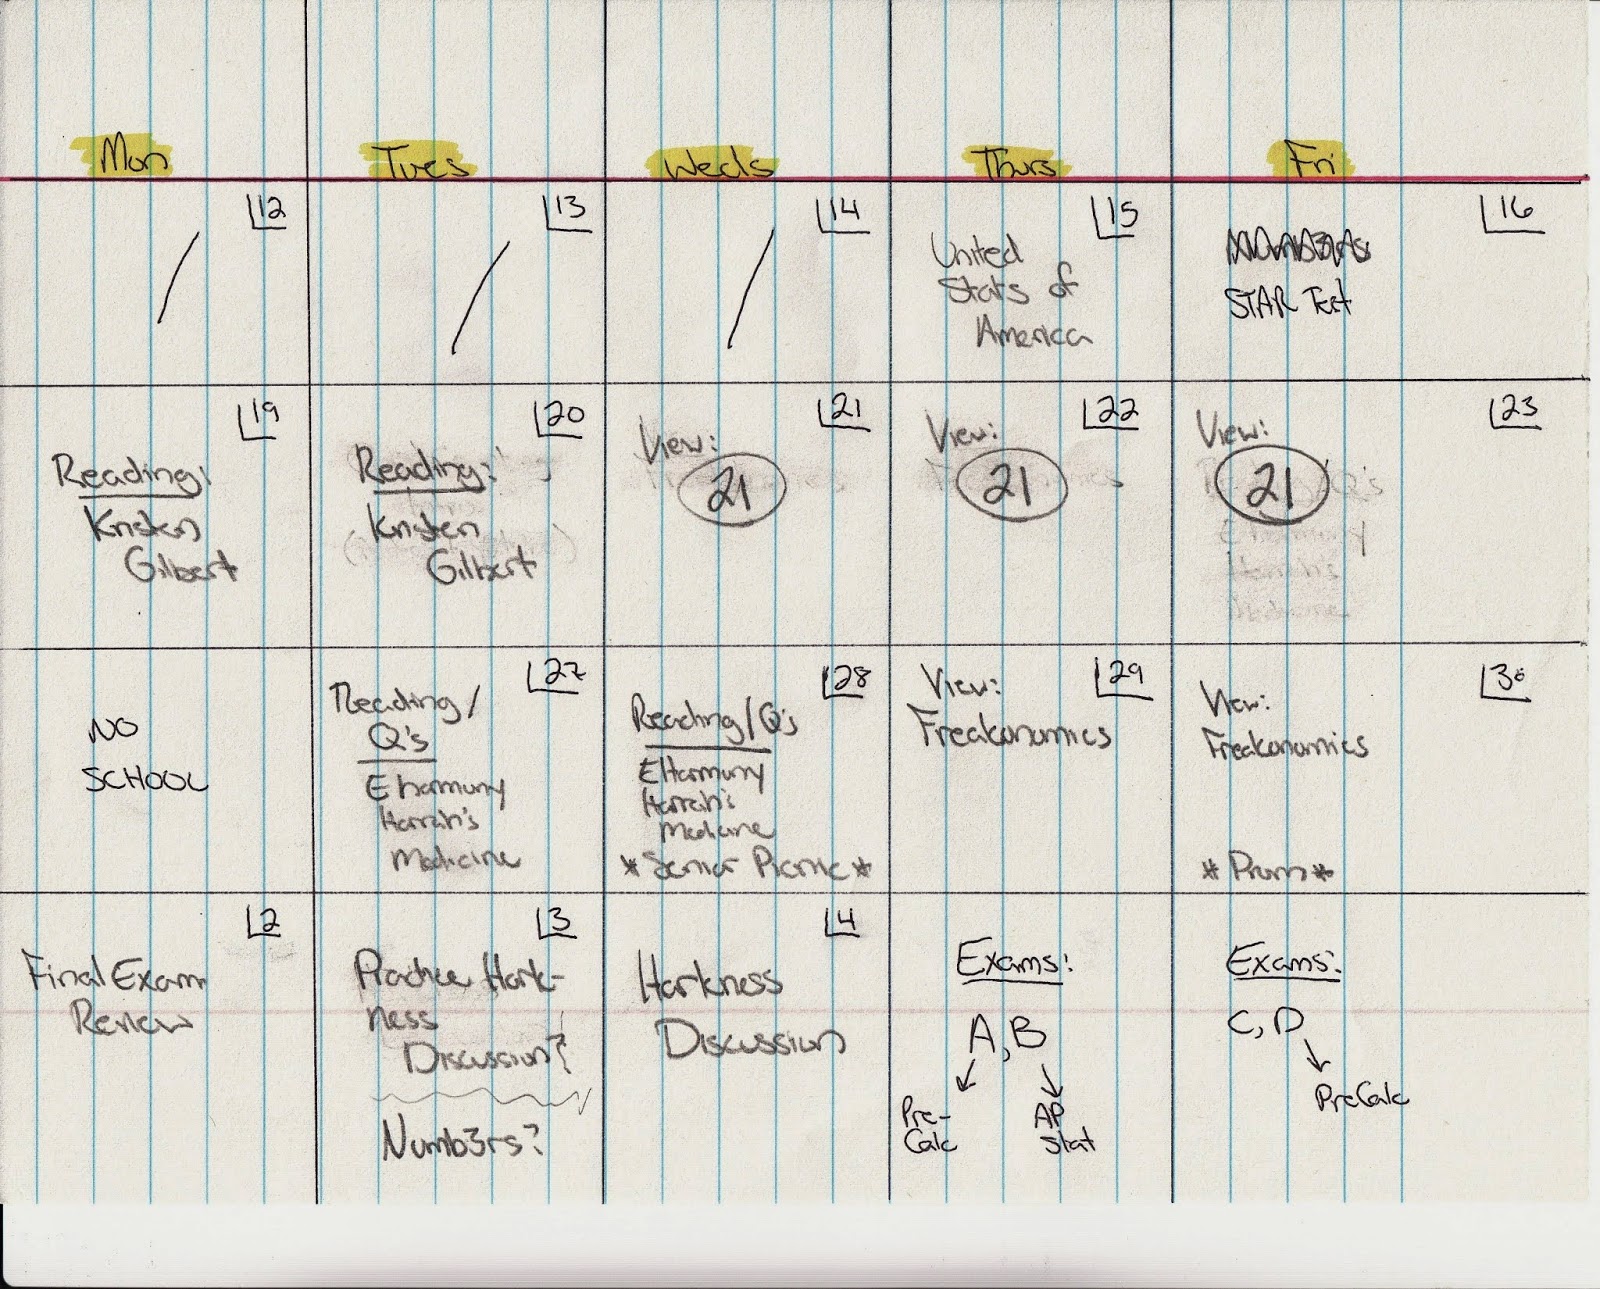 Mon Tues Weds Thurs Fri
12
13
14
15
United
Stats of
America
16
STAR Test
19
Reading:
Kristen
Gilbert
20
Reading:
Kristen
Gilbert
21
View:
21
22
View:
21
23
View:
21
NO
SCHOOL
27
Reading/
Q's
EHarmony
Harrah's
Medicine
28
Reading/Q's
EHarmony
Harrah's
Medicine
*Senior Picnic*
29
View:
Freakonomics
30
View:
Freakonomics
*Prom*
2
Final Exam
Review
3
Practice Hark-
ness
Discussion?
Numb3rs?
4
Harkness
Discussion
Exams:
A, B
Pre-
Calc
AP
Stat
Exams:
C, D
PreCalc